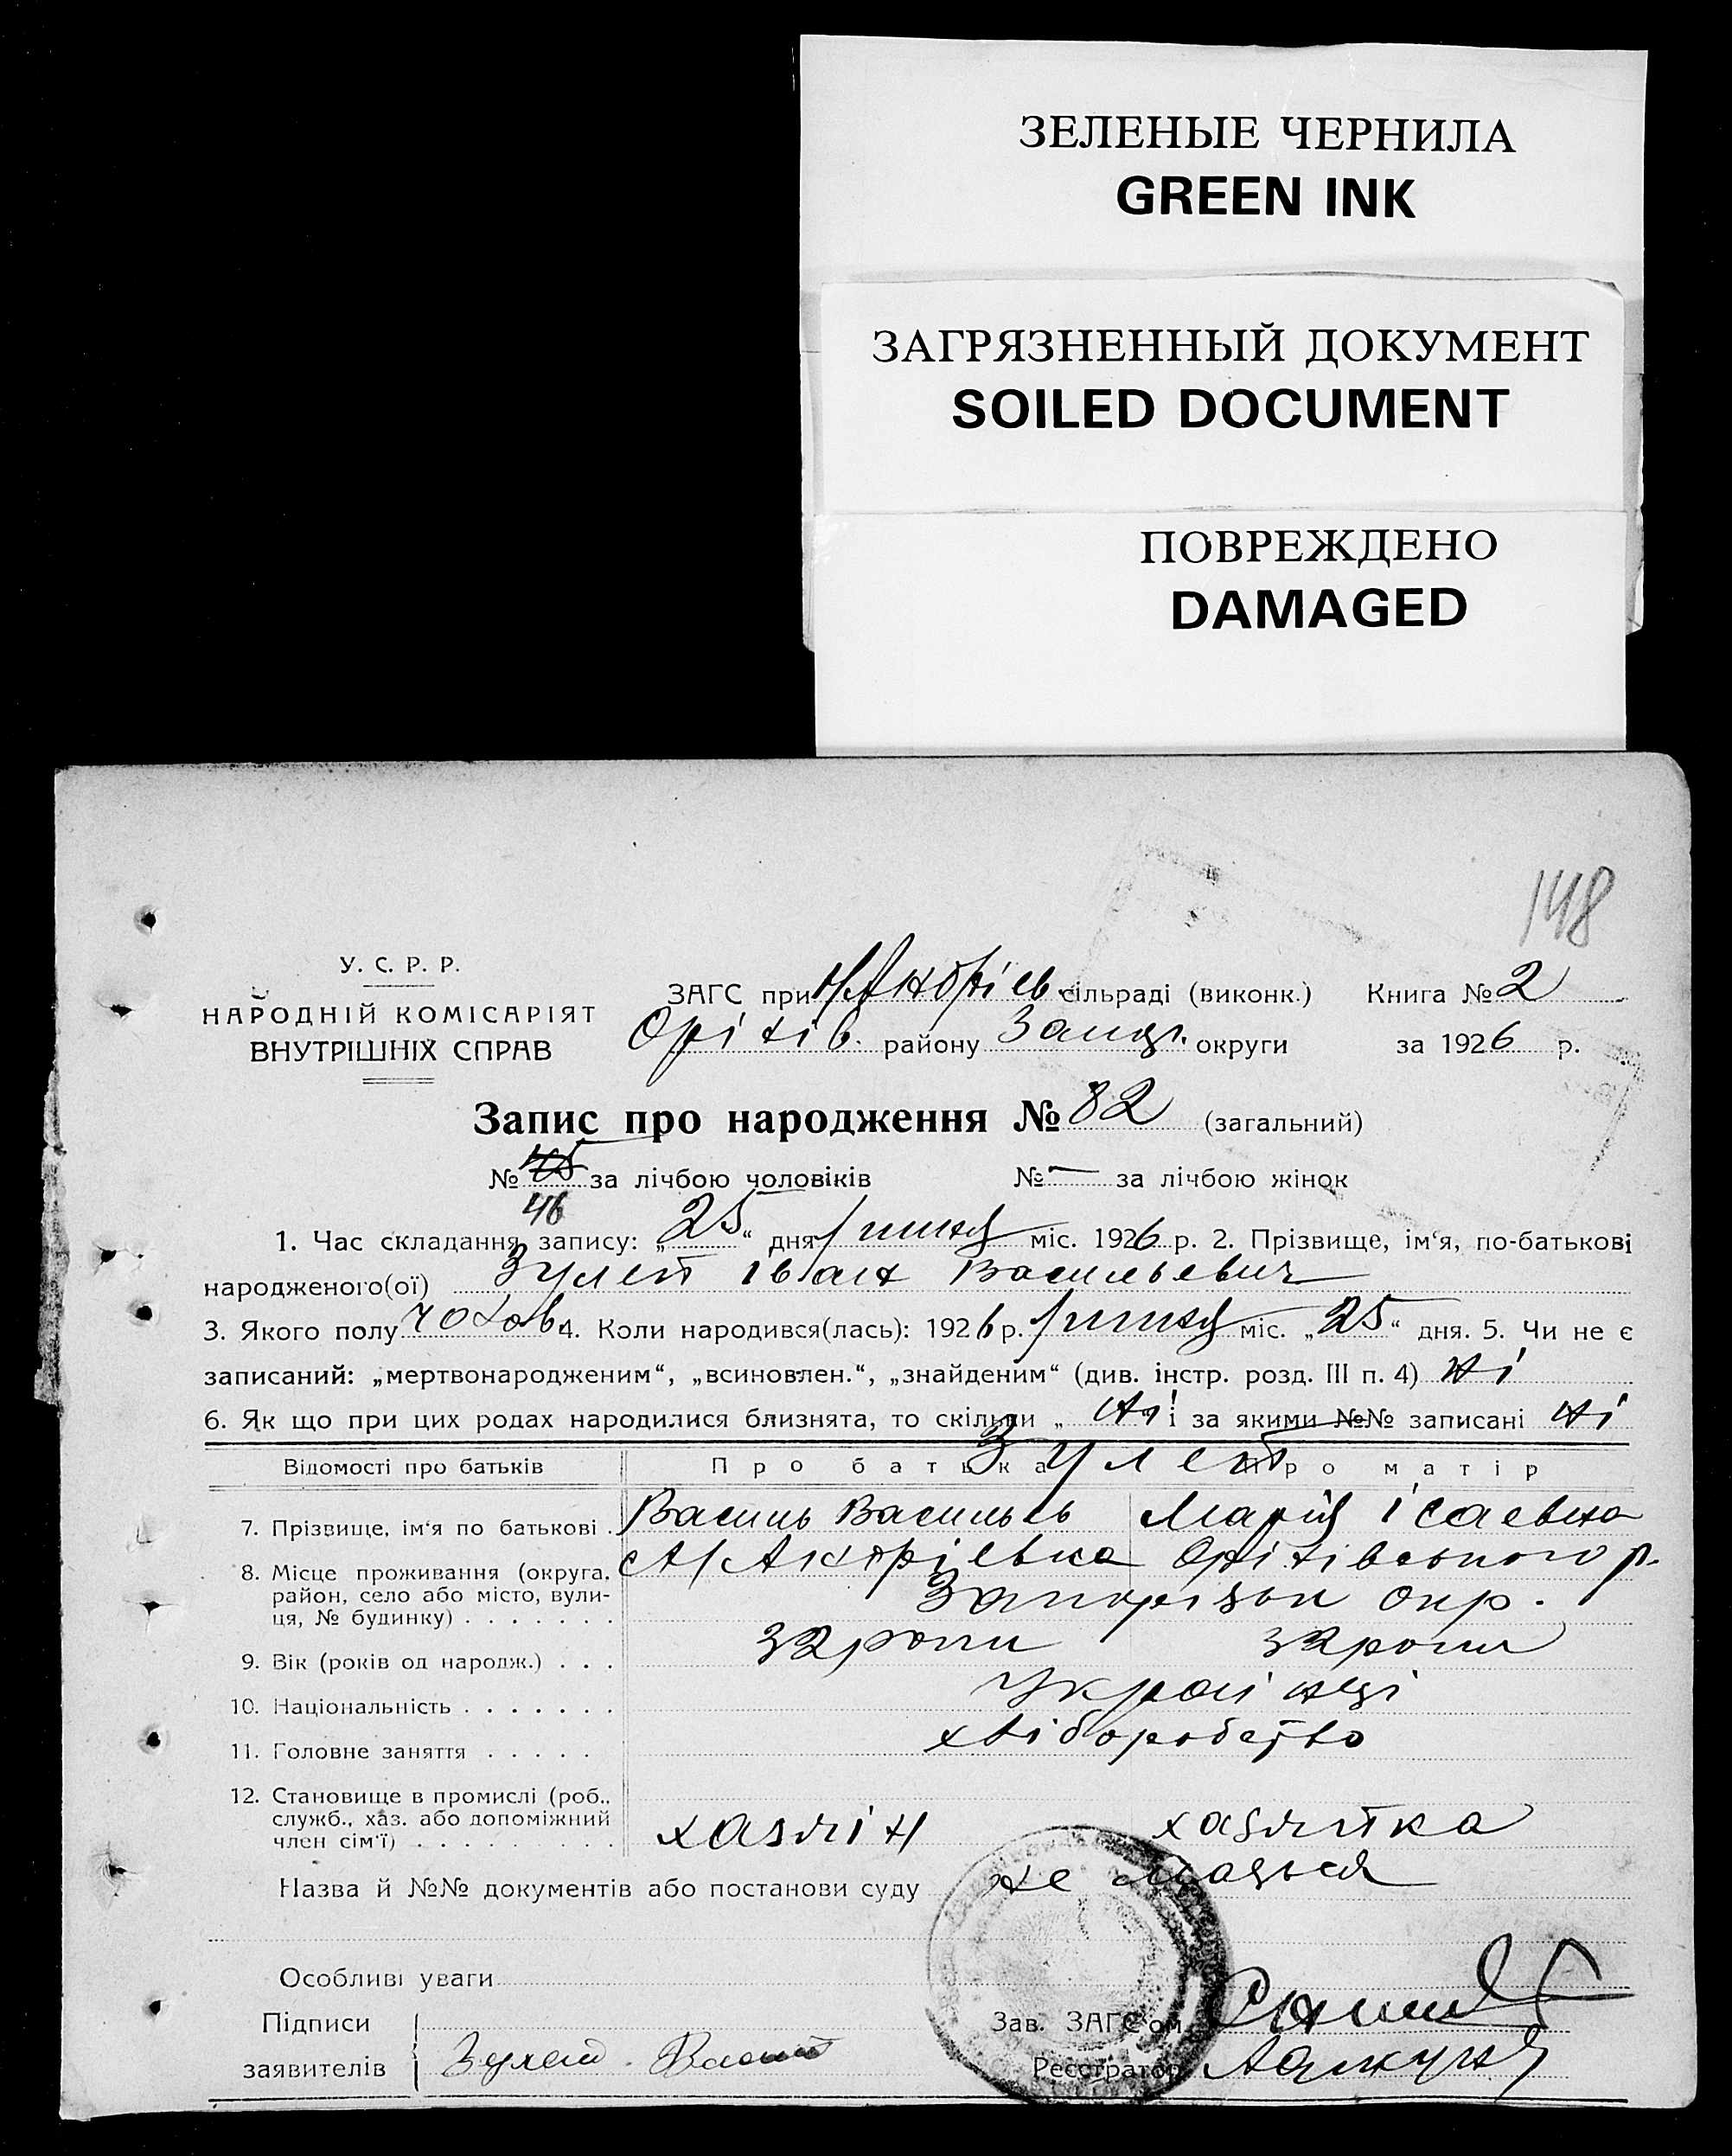 ЗЕЛЕНЫЕ ЧЕРНИЛА
GREEN INK
ЗАГРЯЗНЕННЫЙ ДОКУМЕНТ
SOILED DOCUMENT
ПОВРЕЖДЕНО
DAMAGED
148
У. С. Р. Р.
НАРОДНІЙ КОМІСАРІЯТ
ВНУТРІШНІХ СПРАВ
ЗАГС при сільраді (виконк.) Книга № 2
Оріхів. району Запор. округи за 1926 р.
Запис про народження № 82 (загальний)
№ 45 за лічбою чоловіків № — за лічбою жінок
46
1. Час складання запису: „25“ дня липня міс. 1926 р. 2. Прізвище, ім‘я, по-батькові
народженого(ої) Зулей Іван Васильевич
3. Якого полу чолов. 4. Коли народився(лась): 1926 р. липня міс. „25“ дня. 5. Чи не є
записаний: „мертвонародженим“, „всиновлен.“, „знайденим“ (див. інстр. розд. III п. 4) Ні
6. Як що при цих родах народилися близнята, то скільки „ Ні і за якими №№ записані Ні
Зулей
Відомості про батьків Про батька Про матір
7. Прізвище, ім‘я по батькові . Василь Васильєв Марія Ісаевна
8. Місце проживання (округа, Оріхівського р.
район, село або місто, вули- Запорізьк окр.
ця, № будинку) . . . . . . .
9. Вік (років од народж.) . . . 32 роки 32 роки
10. Національність . . . . . . . Українці
11. Головне заняття . . . . . хліборобство
12. Становище в промислі (роб.,
служб., хаз. або допоміжний
член сім‘ї) . . . . . . . . . хазяїн хазяйка
Назва й №№ документів або постанови суду не мається
Особливі уваги
Підписи
Зав. ЗАГС‘ом
заявителів Зулей
Реєстратор